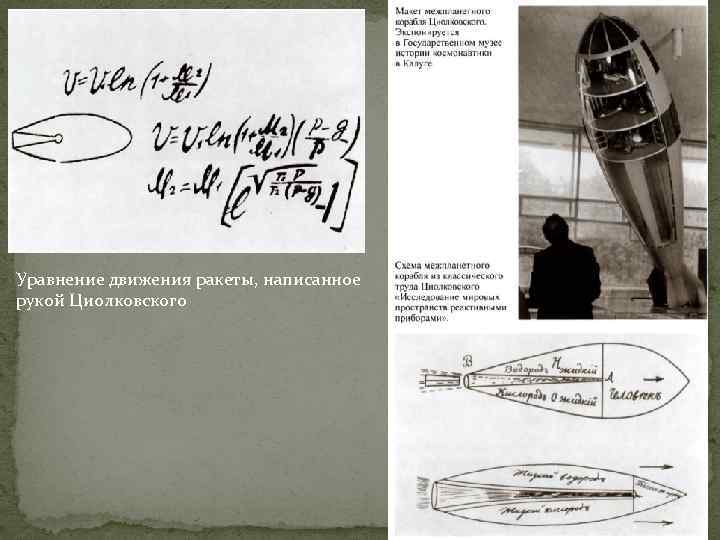 V=V₁ln(1+M₂/M₁)
V=V₁ln(1+M₂/M₁)(p-g/p)
Уравнение движения ракеты, написанное
рукой Циолковского
Макет межпланетного
корабля Циолковского.
Экспонируется
в Государственном музее
истории космонавтики
в Калуге
Схема межпланетного
корабля из классического
труда Циолковского
«Исследование мировых
пространств реактивными
приборами».
B
Водородъ H жидкій
A
Человекъ
Кислородъ O жидкій
Жидкий водородъ
Жидкий кислородъ